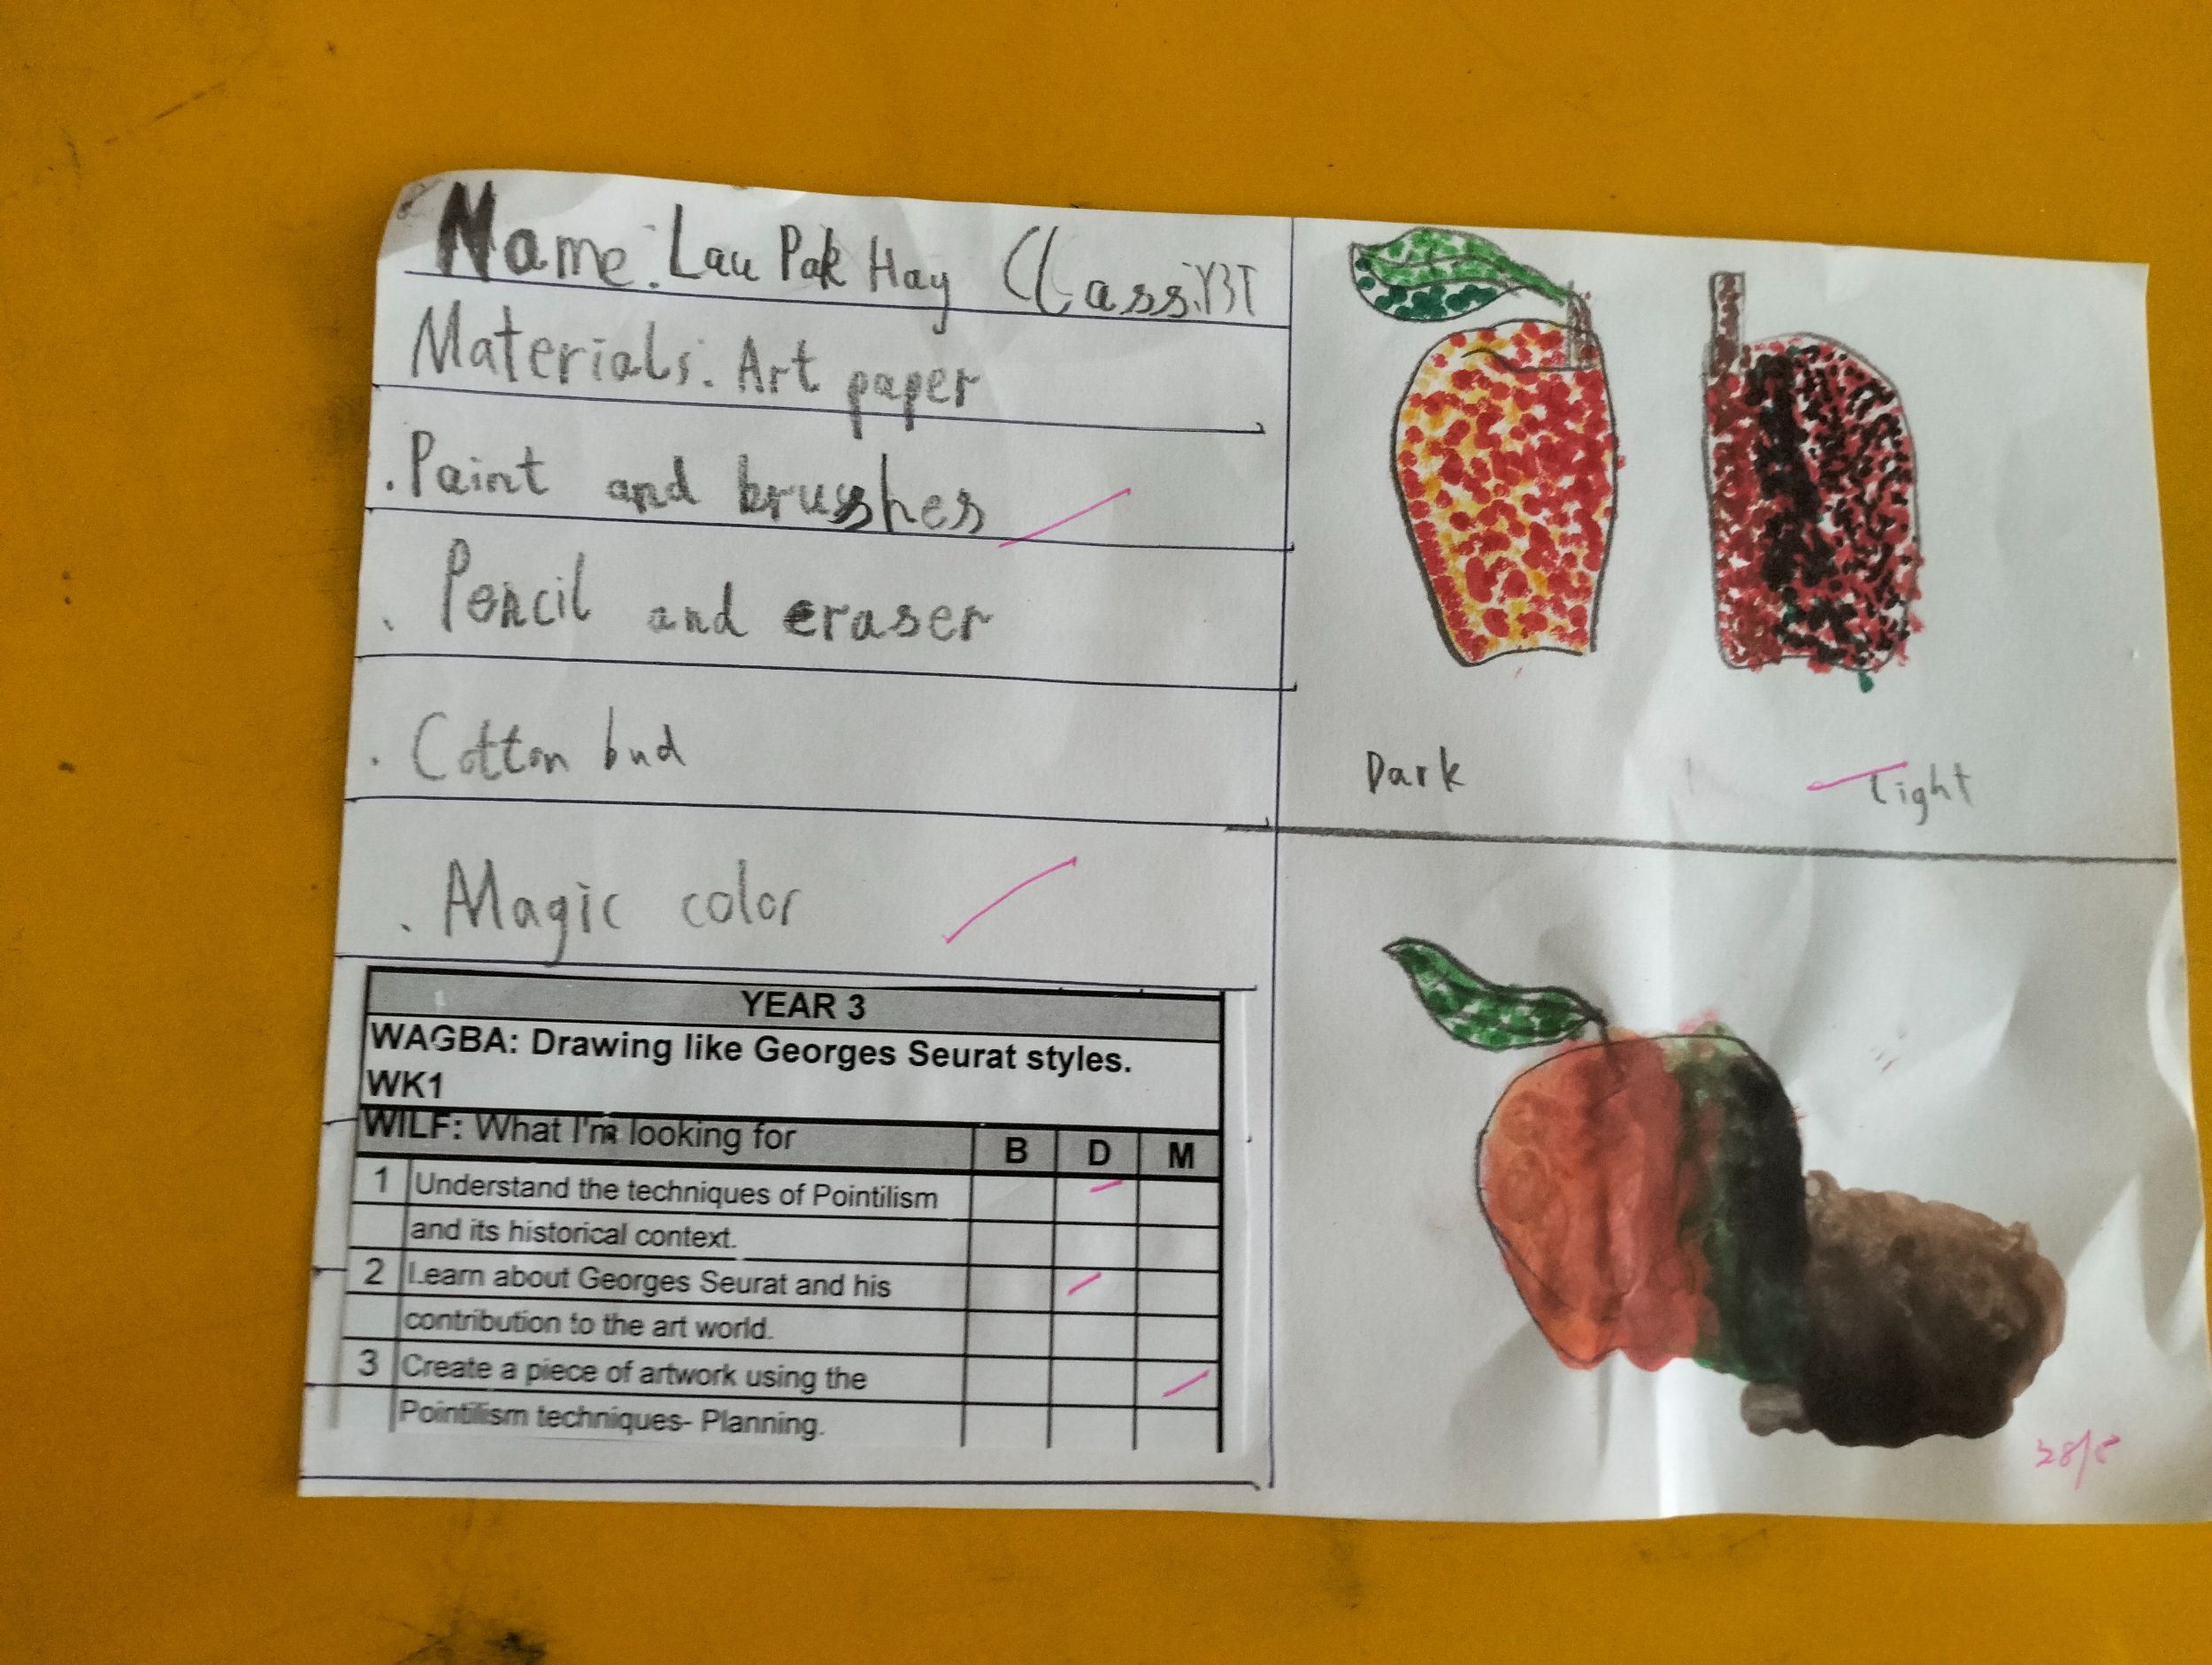 Name: Lau Pak Hay Class: Y3T
Materials: Art paper
. Paint and brushes
. Pencil and eraser
. Cotton bud
. Magic color
YEAR 3
WAGBA: Drawing like Georges Seurat styles.
WK1
WILF: What I'm looking for B D M
1 Understand the techniques of Pointilism
and its historical context.
2 Learn about Georges Seurat and his
contribution to the art world.
3 Create a piece of artwork using the
Pointilism techniques- Planning.
Dark Light